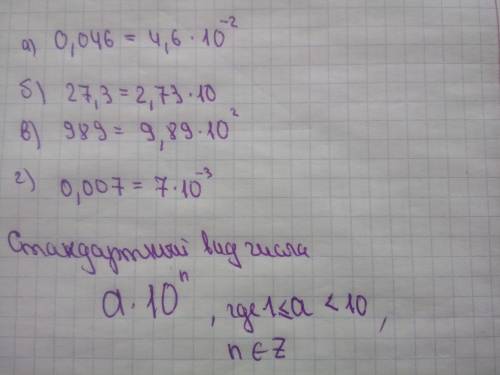 а) 0,046 = 4,6 · 10⁻²
б) 27,3 = 2,73 · 10
в) 989 = 9,89 · 10²
г) 0,007 = 7 · 10⁻³
Стандартный вид числа
a · 10ⁿ, где 1 ≤ a < 10,
n ∈ Z